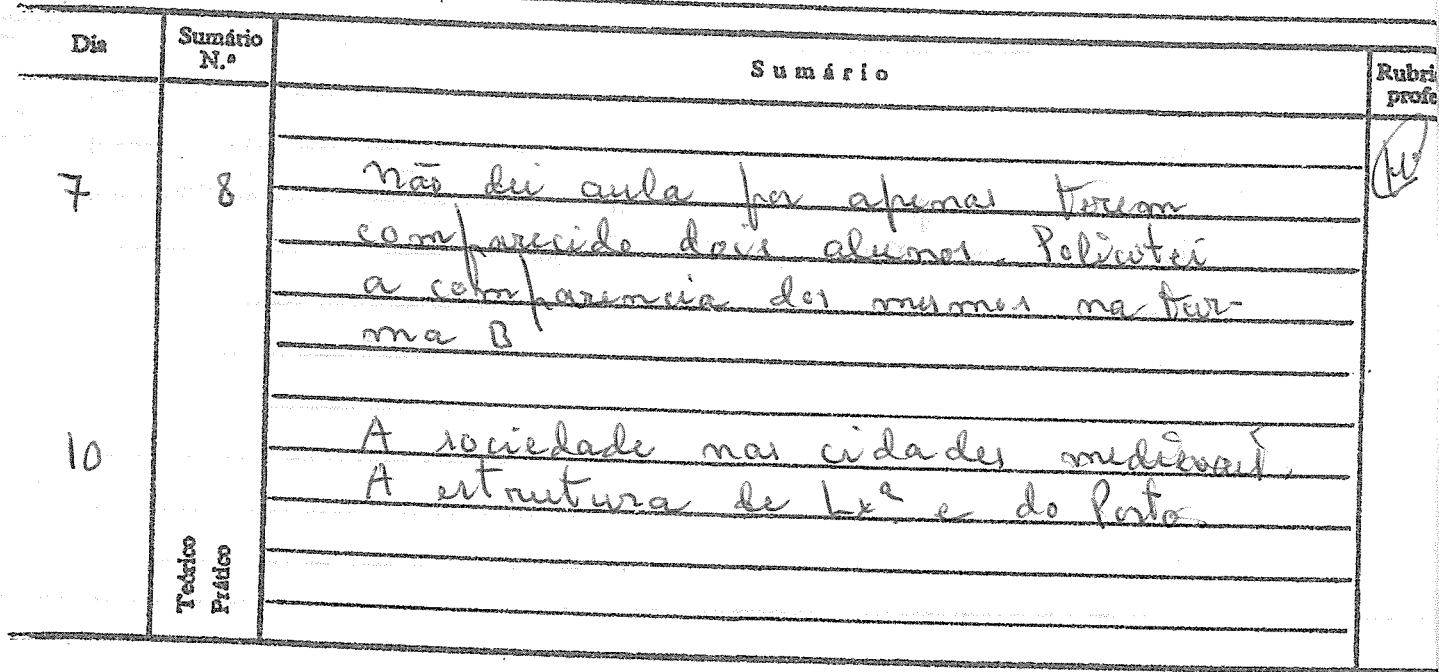 Dia Sumário N.º Sumário Rubri profe
7 8 Não dei aula por apenas terem
comparecido dois alunos. Solicitei
a comparencia dos mesmos na tur-
ma B
10 A sociedade nas cidades medievais.
A estrutura de Lxª e do Porto.
Teórico
Prático